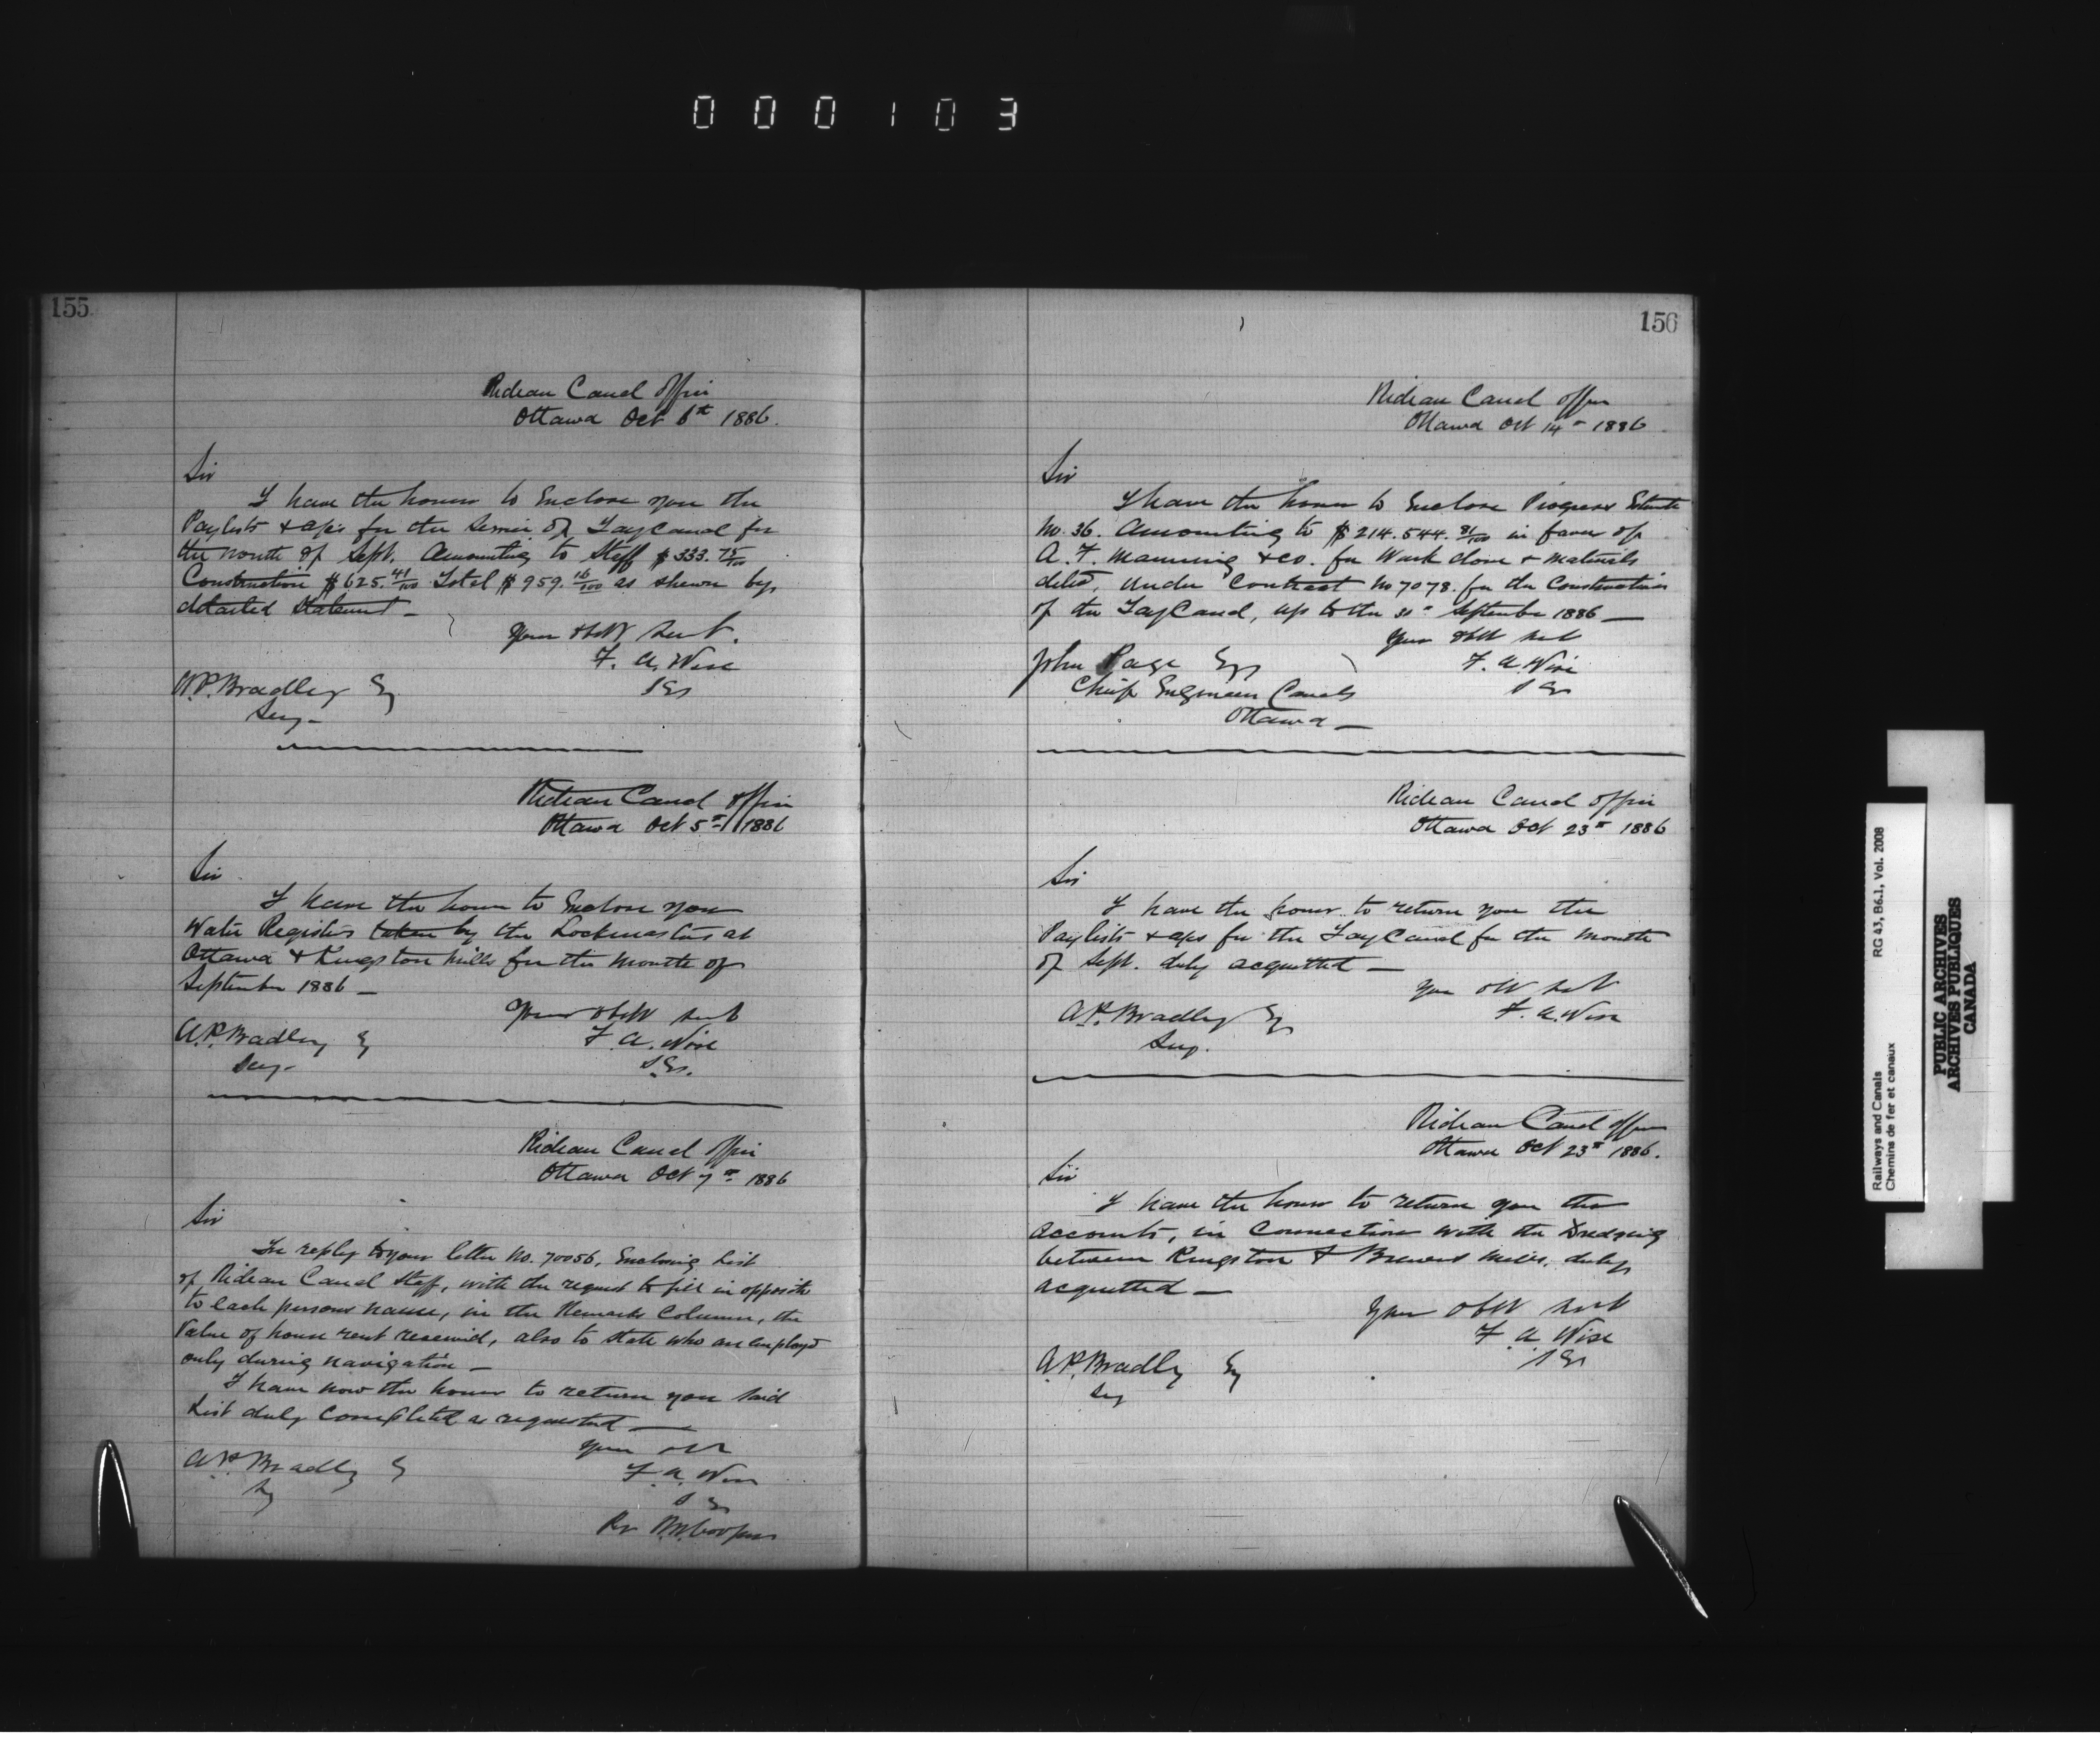 000103
155
Rideau Canal Office
Ottawa Oct 6th 1886.
Sir
I have the honor to Enclose you the
Paylists & a/cs for the Service of Tay Canal for
the month of Sept. Amounting to Staff $333.75/100
Construction $625.41/100 Total $959.16/100 as shewn by
detailed Statement —
Your obdt Servt.
F. A. Wise
A.P. Bradley Esq
Secy —
Rideau Canal Office
Ottawa Oct 5th 1886
Sir
I have the honor to Enclose you
Water Registers taken by the Lockmasters at
Ottawa & Kingston Mills for the Month of
September 1886 —
Your obdt Servt
F. A. Wise
A.P. Bradley Esq
Secy —
Rideau Canal Office
Ottawa Oct 7th 1886
Sir
In reply to your letter No. 70056, Enclosing List
of Rideau Canal Staff, with the request to fill in opposite
to each persons name, in the Remarks Column, the
Value of house rent received, also to state who are employed
only during navigation —
I have now the honor to return you said
List duly Completed as requested —
Your obt
F. A. Wise
A.P. Bradley Esq
Secy
156
Rideau Canal Office
Ottawa Oct 14th 1886.
Sir
I have the honor to Enclose Progress Estimate
No. 36. Amounting to $214.544.81/100 in favor of
A. F. Manning & Co. for Work done & materials
delivd, Under Contract No 7078. for the Construction
of the Tay Canal, up to the September 1886 —
Your obdt Servt
F. A. Wise
John Page Esq
Chief Engineer Canals
Ottawa —
Rideau Canal Office
Ottawa Oct 23rd 1886
Sir
I have the honor to return you the
Paylists & a/cs for the Tay Canal for the Month
of Sept. duly acquitted —
Your obt Servt
F. A. Wise
A.P. Bradley Esq
Secy.
Rideau Canal Office
Ottawa Oct 23rd 1886.
Sir
I have the honor to return you the
accounts, in Connection with the Dredging
between Kingston & Brewers Mills, duly
acquitted —
Your obdt Servt
F. A. Wise
A.P. Bradley Esq
Secy
Railways and Canals
Chemins de fer et canaux
RG 43, B6.1, Vol. 2008
PUBLIC ARCHIVES
ARCHIVES PUBLIQUES
CANADA